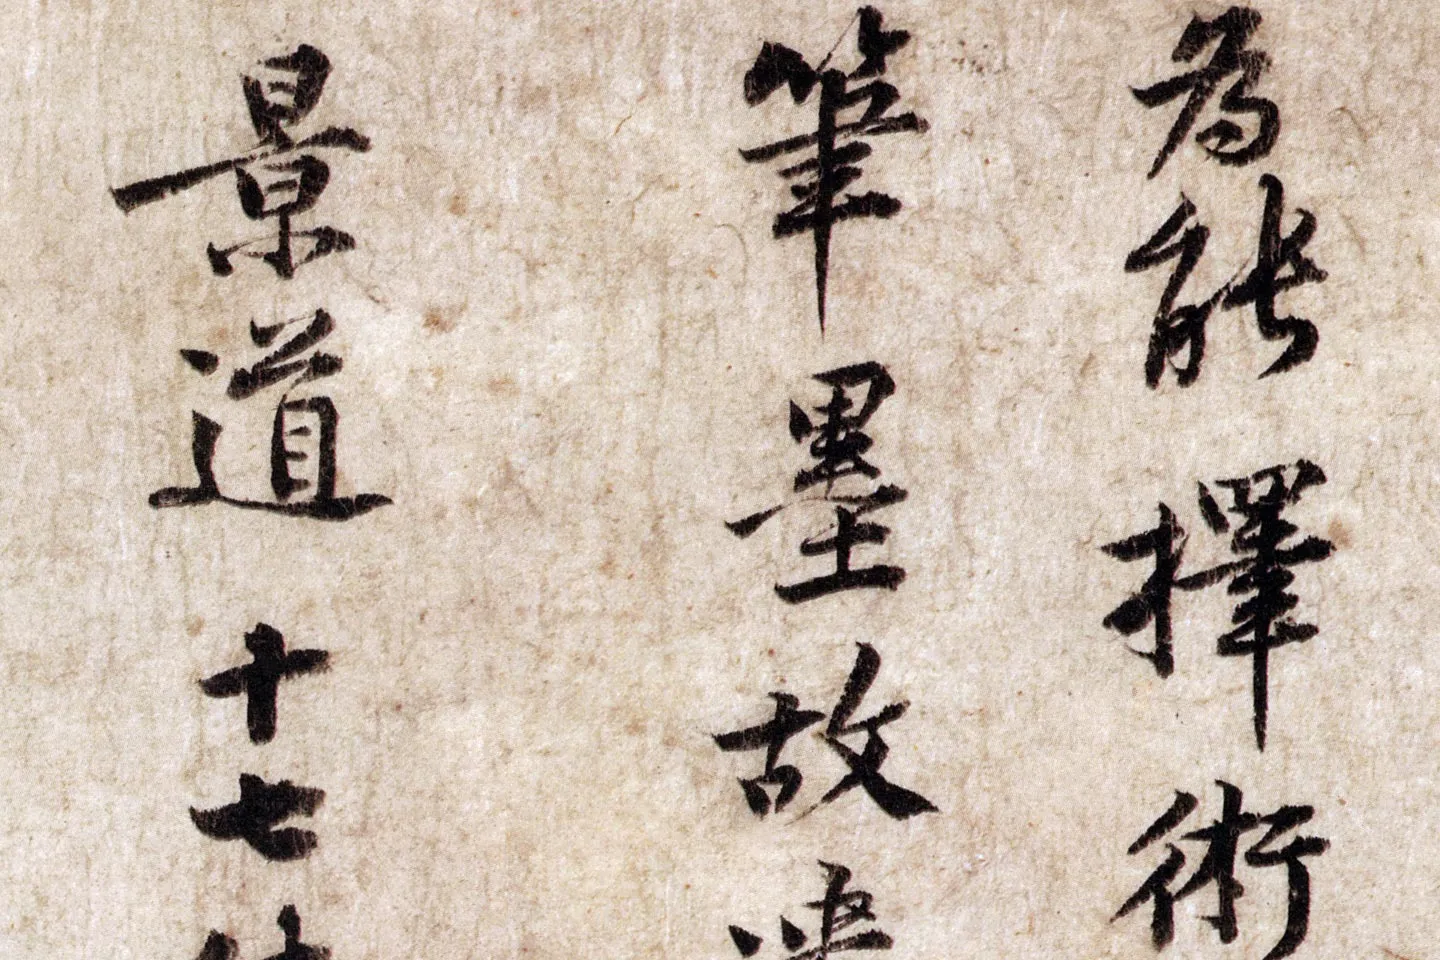 為能擇術
筆墨故
景道十七